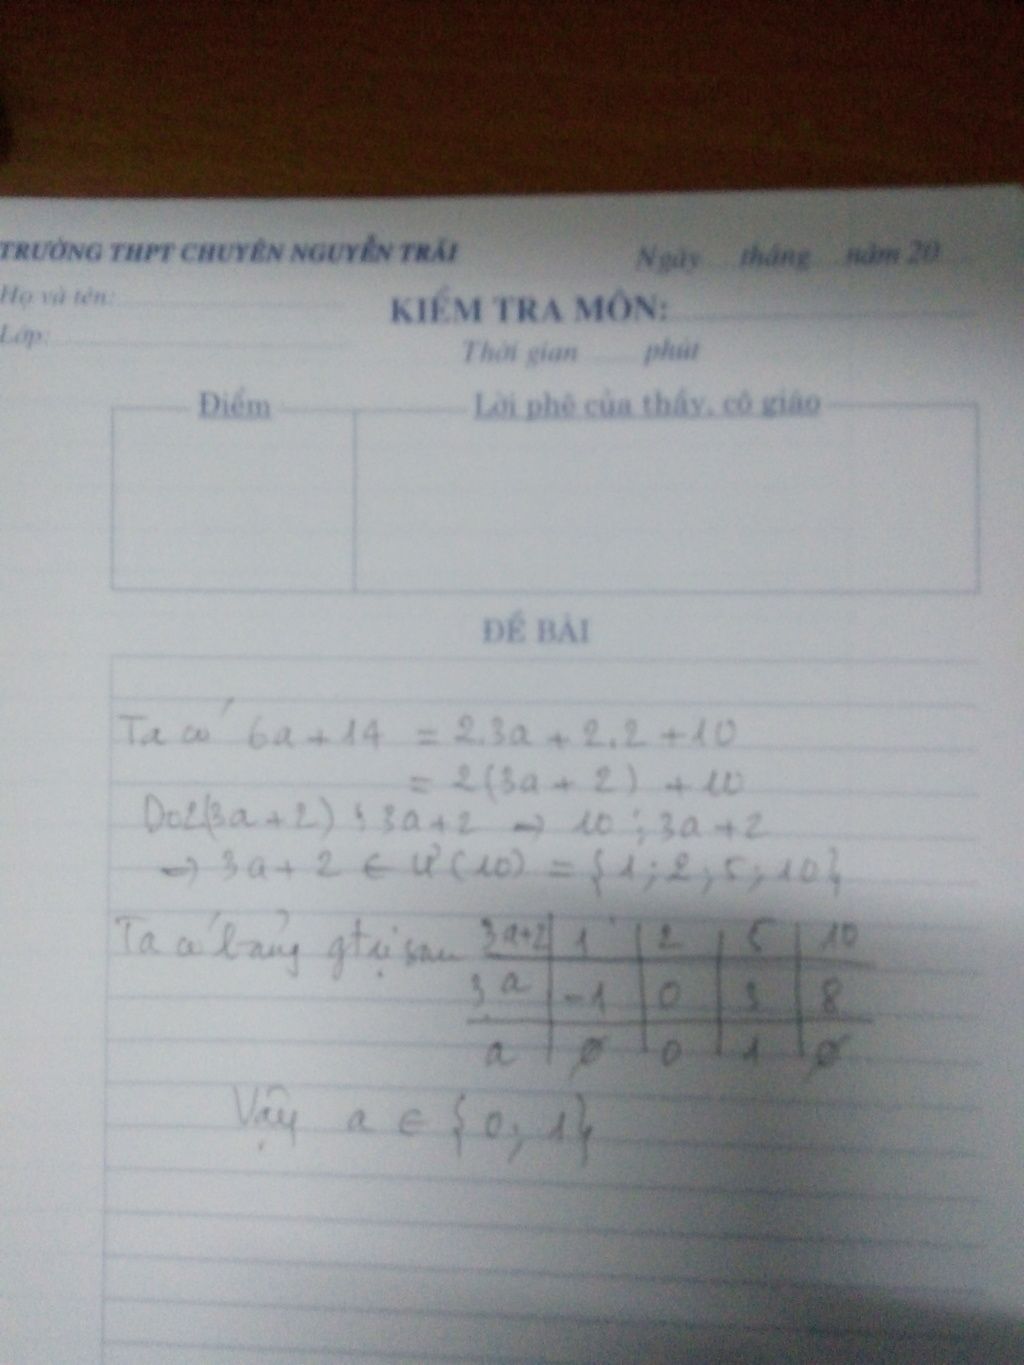 TRƯỜNG THPT CHUYÊN NGUYỄN TRÃI
Ngày tháng năm 20
Họ và tên:
KIỂM TRA MÔN:
Lớp:
Thời gian phút
Điểm
Lời phê của thầy, cô giáo
ĐỀ BÀI
Ta có 6a + 14 = 2.3a + 2.2 + 10
= 2(3a + 2) + 10
Do 2(3a + 2) ⋮ 3a + 2 → 10 ⋮ 3a + 2
→ 3a + 2 ∈ Ư(10) = {1; 2; 5; 10}
Ta có bảng gtrị sau 3a+2 | 1 | 2 | 5 | 10
3a | -1 | 0 | 3 | 8
a | ∅ | 0 | 1 | ∅
Vậy a ∈ {0; 1}